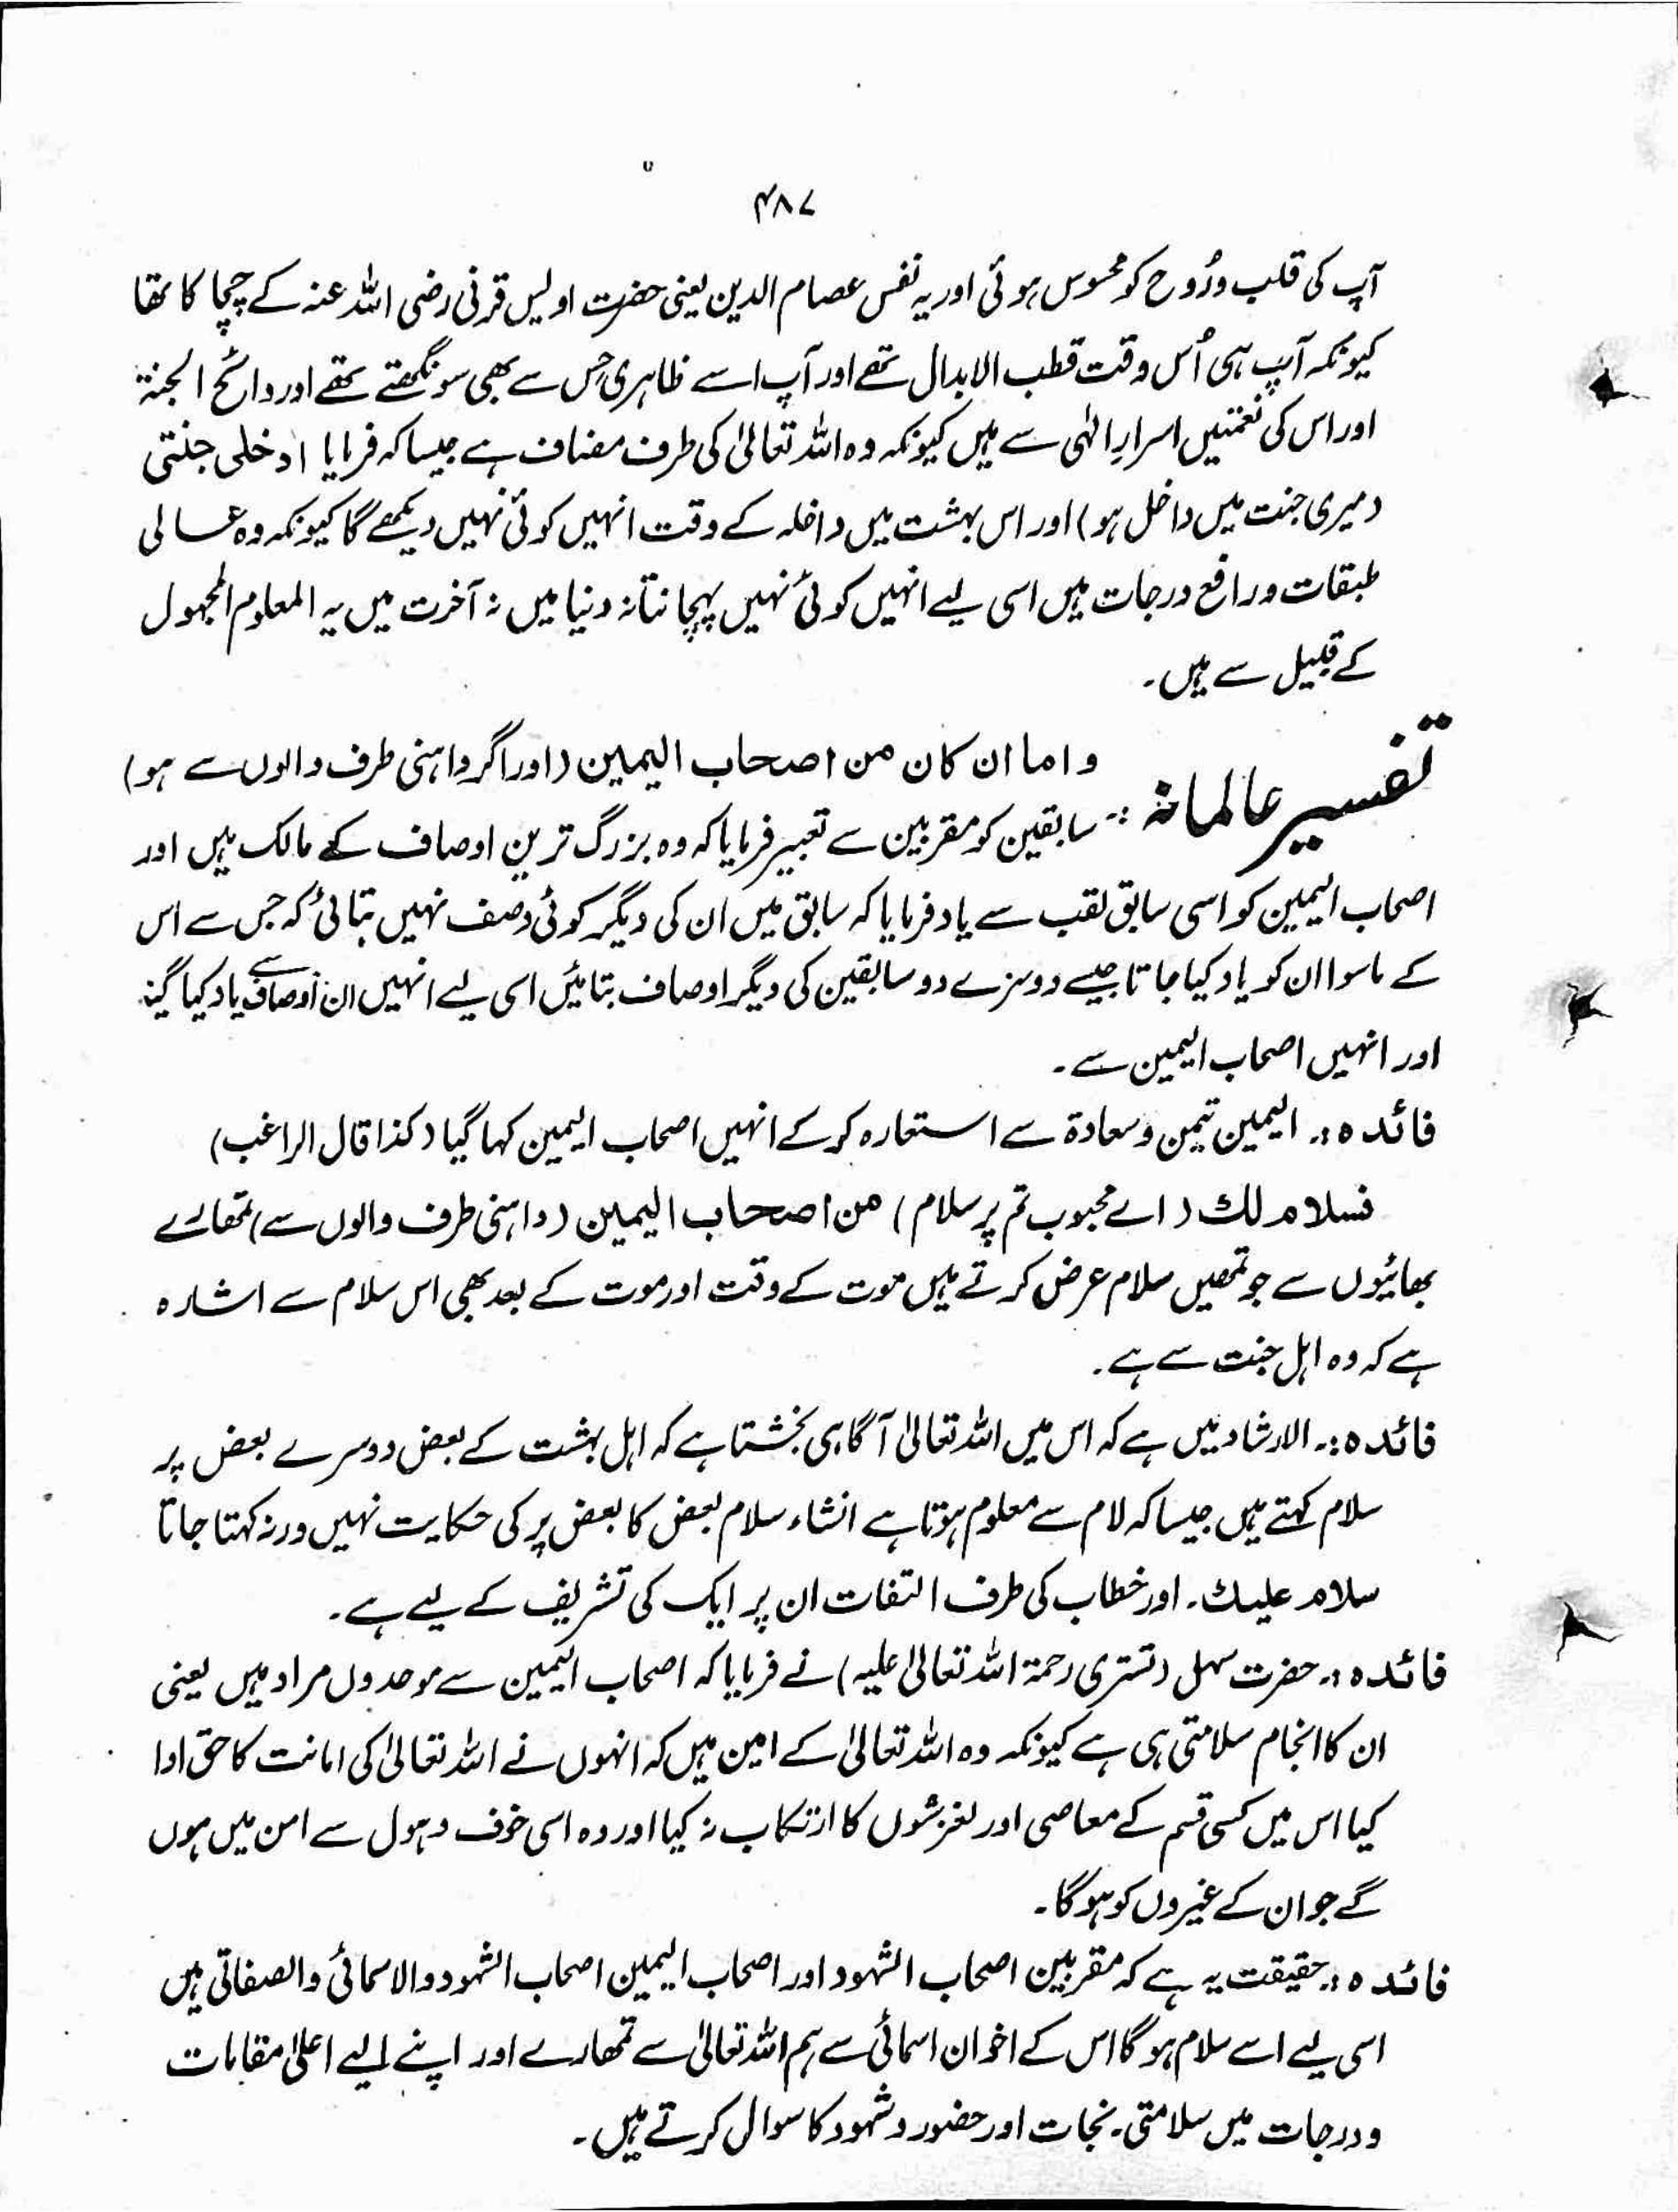 ۴۸۷
آپ کی قلب و رُوح کو محسوس ہوئی اور یہ نفس عصام الدین یعنی حضرت اویس قرنی رضی اللہ عنہ کے چچا کا تھا
کیونکہ آپ ہی اُس وقت قطب الابدال تھے اور آپ اسے ظاہری حِس سے بھی سونگھتے تھے اور روائح الجنۃ
اور اس کی نعمتیں اسرارِ الٰہی سے ہیں کیونکہ وہ اللہ تعالیٰ کی طرف مضاف ہے جیسا کہ فرمایا ادخلی جنتی
(میری جنت میں داخل ہو) اور اس بہشت میں داخلہ کے وقت انہیں کوئی نہیں دیکھے گا کیونکہ وہ عالی
طبقات و رافع درجات ہیں اسی لیے انہیں کوئی نہیں پہچانتا نہ دنیا میں نہ آخرت میں یہ المعلوم المجہول
کے قبیل سے ہیں۔
تفسیر عالمانہ :- واما ان کان من اصحاب الیمین (اور اگر داہنی طرف والوں سے ہو)
سابقین کو مقربین سے تعبیر فرمایا کہ وہ بزرگ ترین اوصاف کے مالک ہیں اور
اصحاب الیمین کو اسی سابق لقب سے یاد فرمایا کہ سابق میں ان کی دیگر کوئی وصف نہیں بتائی کہ جس سے اس
کے ماسوا ان کو یاد کیا جاتا جیسے دوسرے دو سابقین کی دیگر اوصاف بتائیں اسی لیے انہیں ان اوصاف سے یاد کیا گیا
اور انہیں اصحاب الیمین سے۔
فائدہ :- الیمین تیمن و سعادۃ سے استعارہ کر کے انہیں اصحاب الیمین کہا گیا (کذا قال الراغب)
فسلام لك (اے محبوب تم پر سلام) من اصحاب الیمین (داہنی طرف والوں سے) تمھارے
بھائیوں سے جو تمھیں سلام عرض کرتے ہیں موت کے وقت اور موت کے بعد بھی اس سلام سے اشارہ
ہے کہ وہ اہل جنت سے ہے۔
فائدہ :- الارشاد میں ہے کہ اس میں اللہ تعالیٰ آگاہی بخشتا ہے کہ اہل بہشت کے بعض دوسرے بعض پر
سلام کہتے ہیں جیسا کہ لام سے معلوم ہوتا ہے انشاء سلام بعض کا بعض پر کی حکایت نہیں ورنہ کہتا جاتا
سلام علیك۔ اور خطاب کی طرف التفات ان پر ایک کی تشریف کے لیے ہے۔
فائدہ :- حضرت سہل (تستری رحمۃ اللہ تعالیٰ علیہ) نے فرمایا کہ اصحاب الیمین سے موحدوں مراد ہیں یعنی
ان کا انجام سلامتی ہی ہے کیونکہ وہ اللہ تعالیٰ کے امین ہیں کہ انہوں نے اللہ تعالیٰ کی امانت کا حق ادا
کیا اس میں کسی قسم کے معاصی اور لغزشوں کا ارتکاب نہ کیا اور وہ اسی خوف و ہول سے امن میں ہوں
گے جو ان کے غیروں کو ہو گا۔
فائدہ :- حقیقت یہ ہے کہ مقربین اصحاب الشہود اور اصحاب الیمین اصحاب الشہود والاسمائی والصفاتی ہیں
اسی لیے اسے سلام ہو گا اس کے اخوان اسمائی سے ہم اللہ تعالیٰ سے تمھارے اور اپنے لیے اعلیٰ مقامات
و درجات میں سلامتی۔ نجات اور حضور و شہود کا سوال کرتے ہیں۔